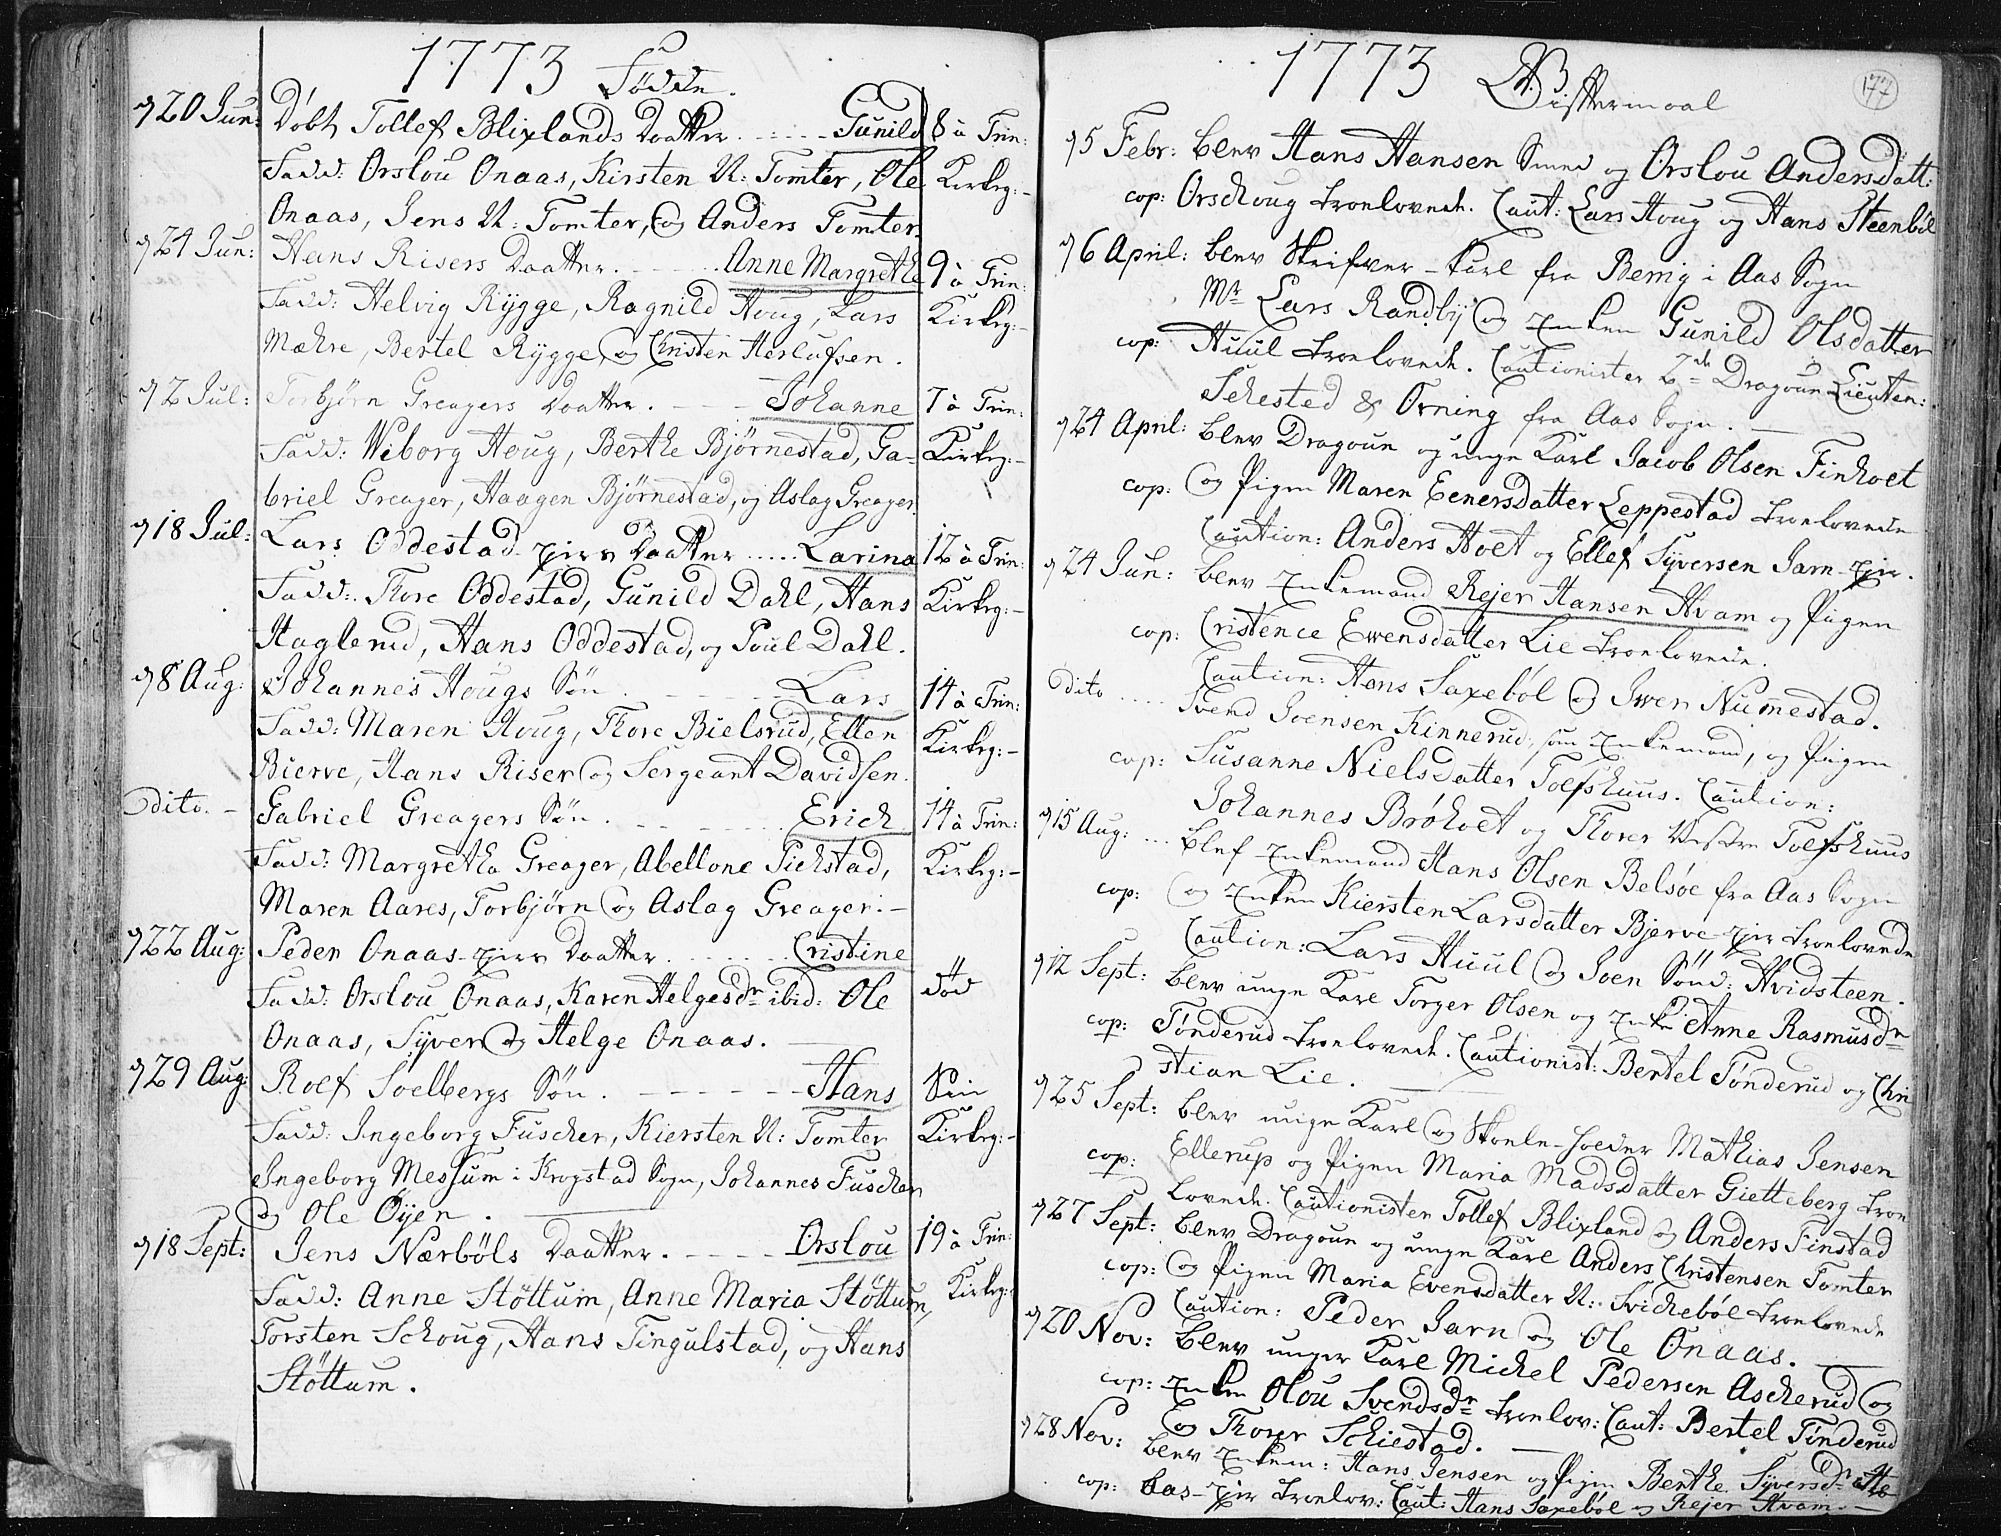 1773 Födde.
d 20 Jun: Döbt Tollef Blixlands Daatter. Gunild 8 à Trin:
Fadd: Orslou Onaas, Kirsten N: Tomter, Ole Kirkeg:
Onaas, Jens N: Tomter, og Anders Tomter.
d 24 Jun: Hans Risers Daatter. Anne Margrethe 9 à Trin:
Fadd: Helvig Rÿgge, Ragnild Houg, Lars Kirkg:
Mæhre, Bertel Rÿgge, og Christen Herlufsen.
d 2 Jul: Torbjörn Greagers Daatter. Johanne 7 à Trin:
Fadd: Wiborg Houg, Berthe Björnestad, Ga= Kirkeg:
briel Greager, Haagen Björnestad, og Aslag Greager.
d 18 Jul: Lars Oddestad Daatter Larina 12 à Trin:
Fadd: Thore Oddestad, Gunild Dahl, Hans Kirkeg:
Haglerud, Hans Oddestad, og Poul Dahl.
d 8 Aug: Johannes Hougs Sön Lars 14 à Trin:
Fadd: Maren Houg, Thore Bielsrud, Ellen Kirkeg:
Bierve, Hans Riser og Sergeant Davidsen.
Dito. Gabriel Greagers Sön. Erich 14 à Trin:
Fadd: Margrethe Greager, Abellone Pichstad, Kirkeg:
Maren Aares, Torbjörn og Aslag Greager.
d 22 Aug: Peder Onaas Daatter. Cristine
Fadd: Orslou Onaas, Karen Helgesdr ibid: Ole död
Onaas, Syver og Helge Onaas.
d 29 Aug: Rolf Soelbergs Sön. Hans
Fadd: Ingeborg Fuscher, Kiersten N: Tomter Kirkeg:
Ingeborg Messum i Krogstad Sogn, Johannes Fuscher
og Ole Öÿen.
d 18 Sept: Jens Nærböls Daatter. Orslou 19 à Trin:
Fadd: Anne Stöttum, Anne Maria Stöttum, Kirkeg:
Torsten Schoug, Hans Tingulstad, og Hans
Stöttum.
1773 Giftermaal
177
d 5 Febr: blev Hans Hansen Smed og Orslou Andersdatt:
cop: Orschoug troelovede. Caut: Lars Houg og Hans Steenböl
d 6 April: blev Skrifver-Karl fra Berrig i Aas Sogn
Mr Lars Randbÿ og Enken Gunild Olsdatter
cop: Huul troelovede. Cautionister 2de Dragoun Lieuten:
Sehested & Orning fra Aas Sogn.
d 24 April: blev Dragoun og unge Karl Jacob Olsen Finholt
cop: og Pigen Maren Eenersdatter Leppestad troelovede
Caution: Anders Hoet og Ellef Syversen Sarn
d 24 Jun: blev Enkemand Rejer Hansen Hvam og Pigen
cop: Cristence Ewensdatter Lie troelovede.
Caution: Hans Saxeböl og Iwer Nummestad.
Dito Svend Joensen Kinnerud, som Enkemand, og Pigen
cop: Susanne Nielsdatter Toefshuus. Caution:
Johannes Bröholt og Thorer Vestre Toefshuus
d 15 Aug: blef Enkemand Hans Olsen Belsöe fra Aas Sogn
cop: og Enken Kiersten Larsdatter Bjerve troelovede
Caution: Lars Huul og Joen Sönd: Hvidsteen.
d 12 Sept: blev unge Karl Torger Olsen og Enke Anne Rasmusdr
cop: Tönderud troelovede. Cautionist: Bertel Tönderud og Chri
stian Lie.
d 25 Sept: blev unge Karl og Skoele-Holder Mathias Jensen
cop: Ellerup og Pigen Maria Madsdatter Gietteberg troe
lovede. Cautionister Tollef Blixland og Anders Finstad
d 27 Sept: blev Dragoun og unge Karl Anders Christensen Tomter
cop: og Pigen Maria Evensdatter N: Svicheböl troelovede
Caution: Peder Sarn og Ole Onaas.
d 20 Nov: blev unger Karl Michel Pedersen Ascherud og
cop: Enken Olou Svendsdr troelov: Caut: Bertel Tönderud
og Thorer Schiestad.
d 28 Nov: blev Enkem: Hans Jensen og Pigen Berthe Syversdr
cop: troelov: Caut: Hans Saxeböl og Rejer Hvam.